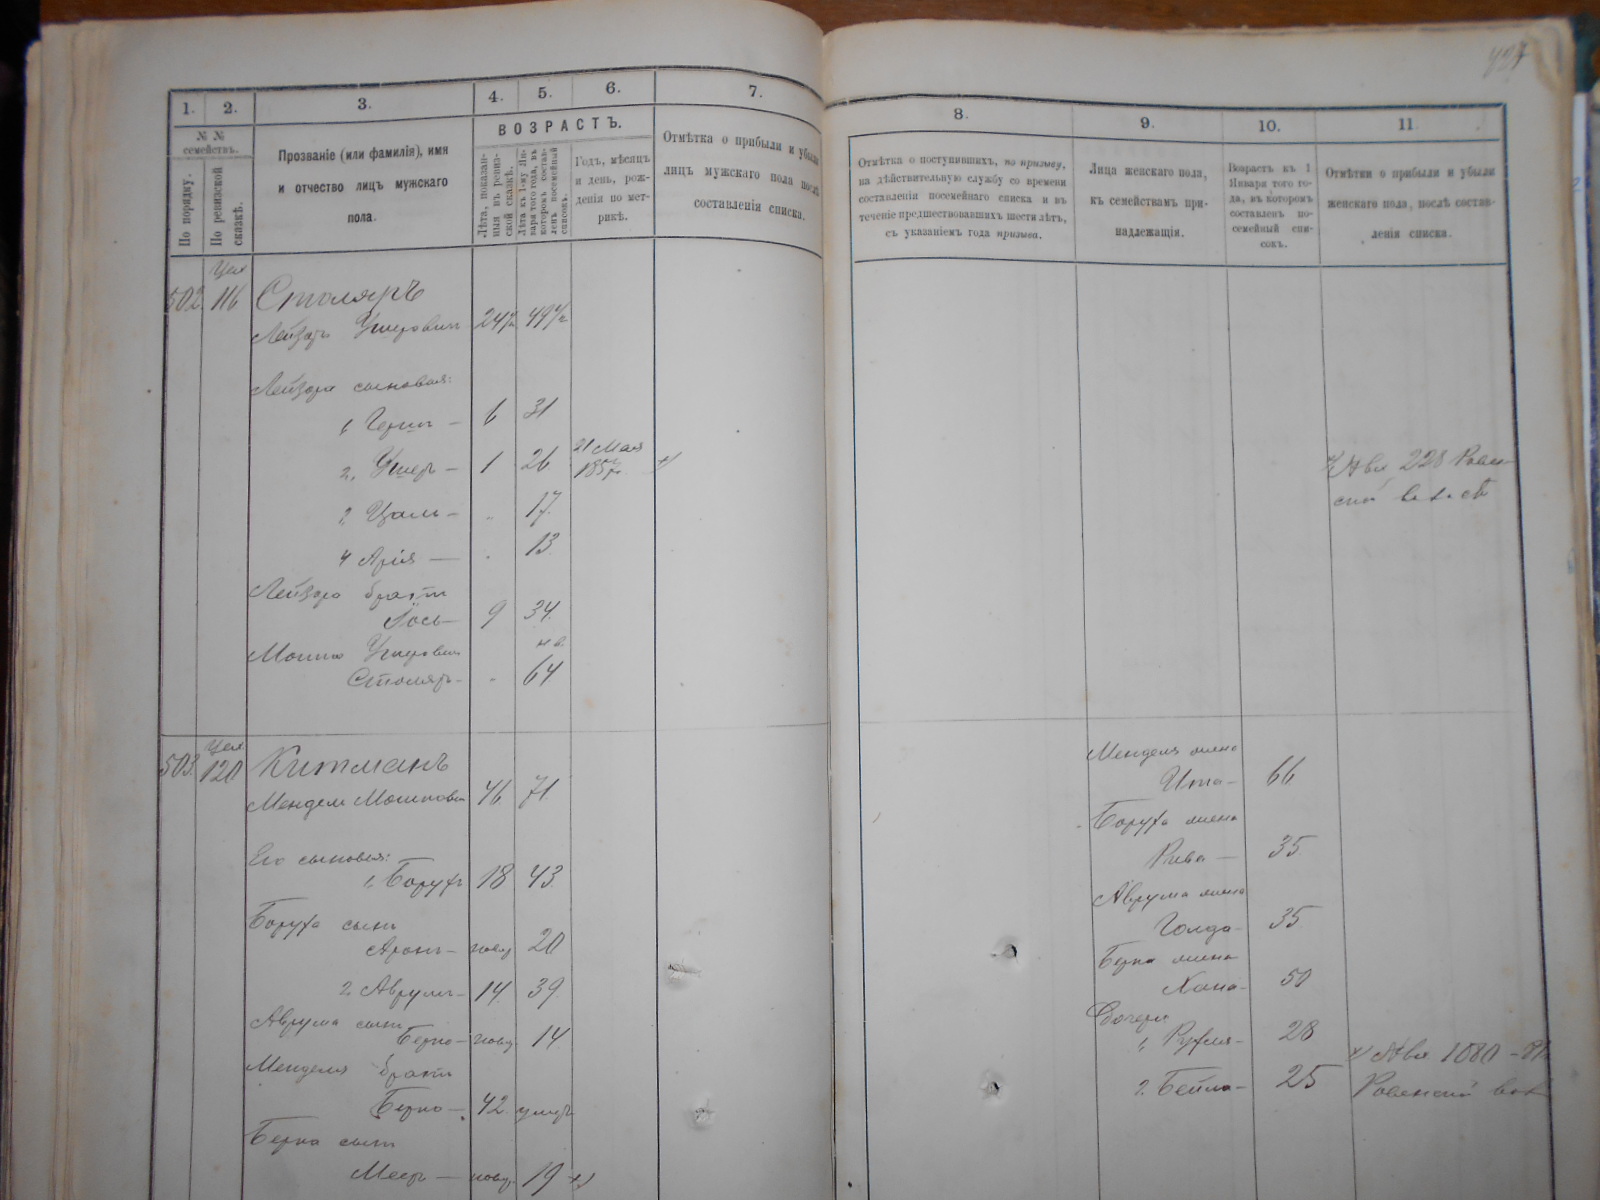 1.
2.
3.
4.
5.
6.
7.
№ №
семействъ.
По порядку.
По ревизской сказкѣ.
Прозваніе (или фамилія), имя
и отчество лицъ мужскаго
пола.
ВОЗРАСТЪ.
Лѣта, показан-
ныя въ ревиз-
ской сказкѣ.
Лѣта къ 1-му Ян-
варя того года, въ
которомъ состав-
ленъ посемейный
списокъ.
Годъ, мѣсяцъ
и день, рож-
денія по мет-
рикѣ.
Отмѣтка о прибыли и убыли
лицъ мужскаго пола послѣ
составленія списка.
502
116
Столяръ
Лейзоръ Ушеровичъ 24½ 49½
Лейзора сыновья:
1, 6 31
2, Ушеръ — 1 26 21 Мая
185
Цаль — 17
4 Арія — 13
Лейзора братъ
Іось — 9 34
Мошко Ушеровичъ
Столяръ — 64
503
120
Китманъ
Мендель Мошкович 46 71
Его сыновья:
1, Борухъ 18 43
Боруха сынъ
Аронъ — 20
2 Аврумъ — 14 39
Аврума сынъ
Берко — 14
Менделя братъ
Берко — 42
Берка сынъ
Мееръ — 19
8.
9.
10.
11
Отмѣтка о поступившихъ, по призыву,
на дѣйствительную службу со времени
составленія посемейнаго списка и въ
теченіе предшествовавшихъ шести лѣтъ,
съ указаніемъ года призыва.
Лица женскаго пола,
къ семействамъ при-
надлежащія.
Возрастъ къ 1
Января того го-
да, въ которомъ
составленъ по-
семейный спи-
сокъ.
Отмѣтки о прибыли и убыли
женскаго пола, послѣ состав-
ленія списка.
228 Ровен-
ской
Менделя жена
Ита — 66
Боруха жена
Рива — 35
Аврума жена
Голда — 35
Берка жена
Хана — 50
Дочери
1, Рухля — 28
2. Бейла — 25
1080
Ровенской